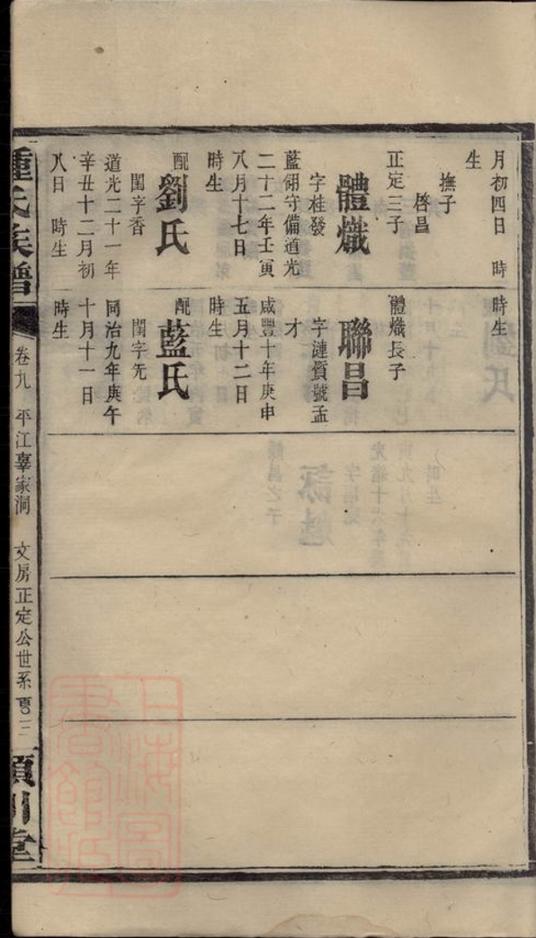 月初四日 時
生
撫子
啓昌
正定三子
體熾
字桂發
藍翎守備道光
二十二年壬寅
八月十七日
時生
配
劉氏
閨字香
道光二十一年
辛丑十二月初
八日 時生
時生
體熾長子
聯昌
字漣質號孟
才
咸豐十年庚申
五月十二日
時生
配
藍氏
閨字先
同治九年庚午
十月十一日
時生
鍾氏族譜
卷九 平江辜家洞 文房正定公世系
潁川堂
上海圖書館藏